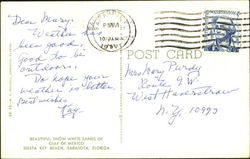 Dear Mary,
Weather has
been good,
Good to be
outdoors.
Do hope your
weather is better.
Best wishes,
Kay
POST CARD
Miss Mary Purdy
Route 9 W
West Haverstraw
N.Y. 10993
BEAUTIFUL SNOW WHITE SANDS OF
GULF OF MEXICO
SIESTA KEY BEACH, SARASOTA, FLORIDA